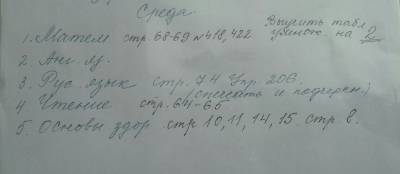 Среда
Выучить табл
1. Матем стр. 68-69 № 418, 422 умнож. на 2
2. Анг. яз.
3. Рус. язык стр. 74 Упр. 206.
(списать и подчеркн.)
4 Чтение стр. 64-65
5. Основы здор стр 10, 11, 14, 15 стр. 8.